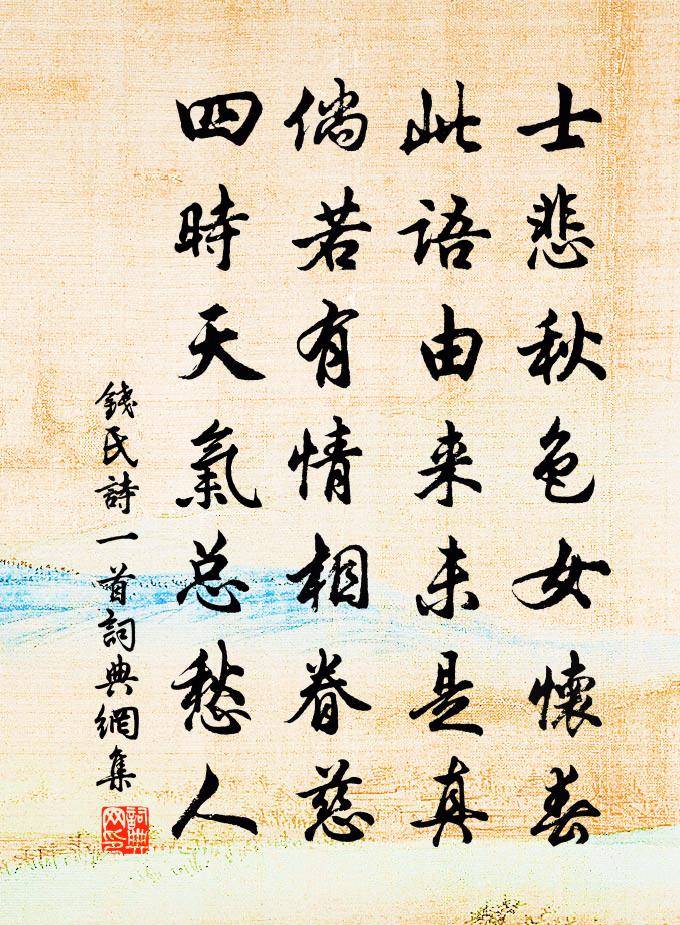 士悲秋色女懷春
此語由来未是真
倘若有情相眷戀
四時天氣总愁人
錢氏詩一首詞典網集
詞典网印